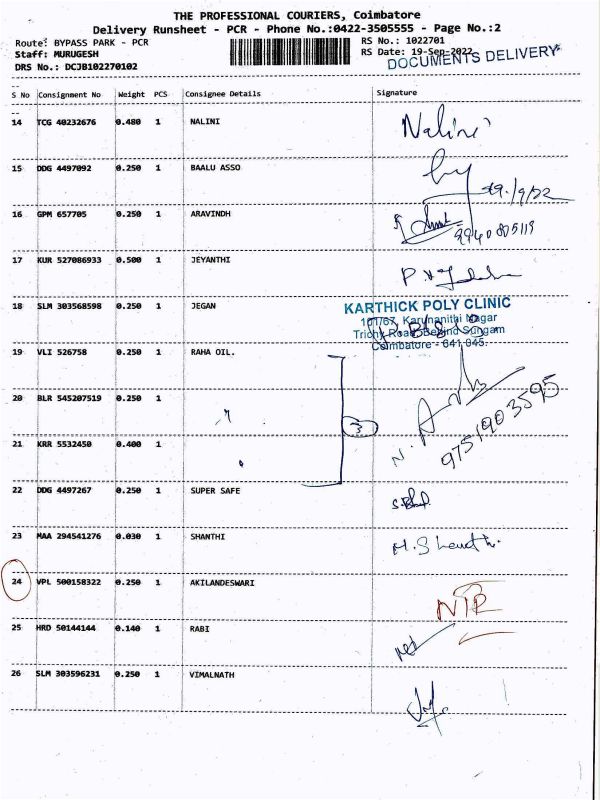 THE PROFESSIONAL COURIERS, Coimbatore
Delivery Runsheet - PCR - Phone No.:0422-3505555 - Page No.:2
Route: BYPASS PARK - PCR RS No.: 1022701
Staff: MURUGESH RS Date: 19-Sep-2022
DOCUMENTS DELIVERY
DRS No.: DCJB102270102
S No Consignment No Weight PCS Consignee Details Signature
14 TCG 40232676 0.480 1 NALINI Nalini
15 DDG 4497092 0.250 1 BAALU ASSO
19/9/22
16 GPM 657705 0.250 1 ARAVINDH
9940805119
17 KUR 527086933 0.500 1 JEYANTHI
18 SLM 303568598 0.250 1 JEGAN
KARTHICK POLY CLINIC
101/67, Karunanithi Nagar
Trichy Road, Behind Sungam
Coimbatore - 641 045.
19 VLI 526758 0.250 1 RAHA OIL.
20 BLR 545207519 0.250 1 "
3
9751903595
21 KRR 5532450 0.400 1
22 DDG 4497267 0.250 1 SUPER SAFE
23 MAA 294541276 0.030 1 SHANTHI M.Shanthi
24 VPL 500158322 0.250 1 AKILANDESWARI NTR
25 HRD 50144144 0.140 1 RABI
26 SLM 303596231 0.250 1 VIMALNATH